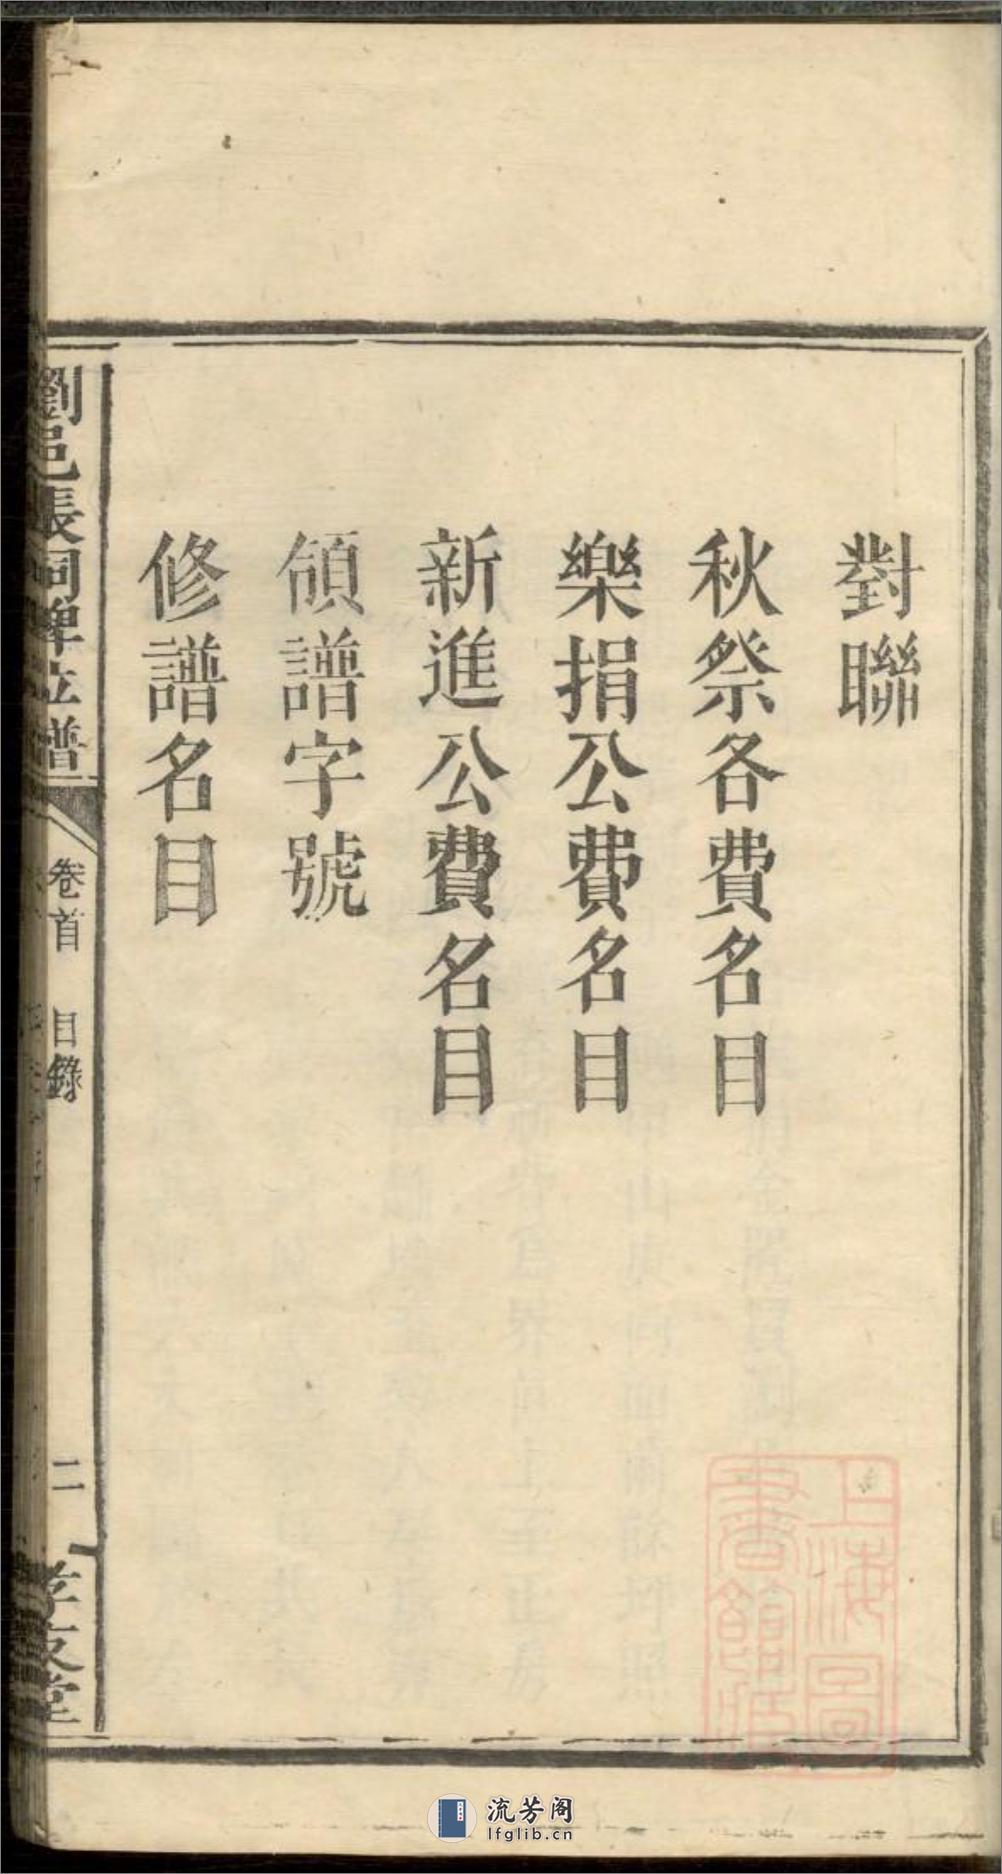 對聯
秋祭各費名目
樂捐公費名目
新進公費名目
領譜字號
修譜名目
劉邑張祠碑立譜
卷首 目錄
二
孝友堂
上海圖
書館藏
流芳阁
lfglib.cn